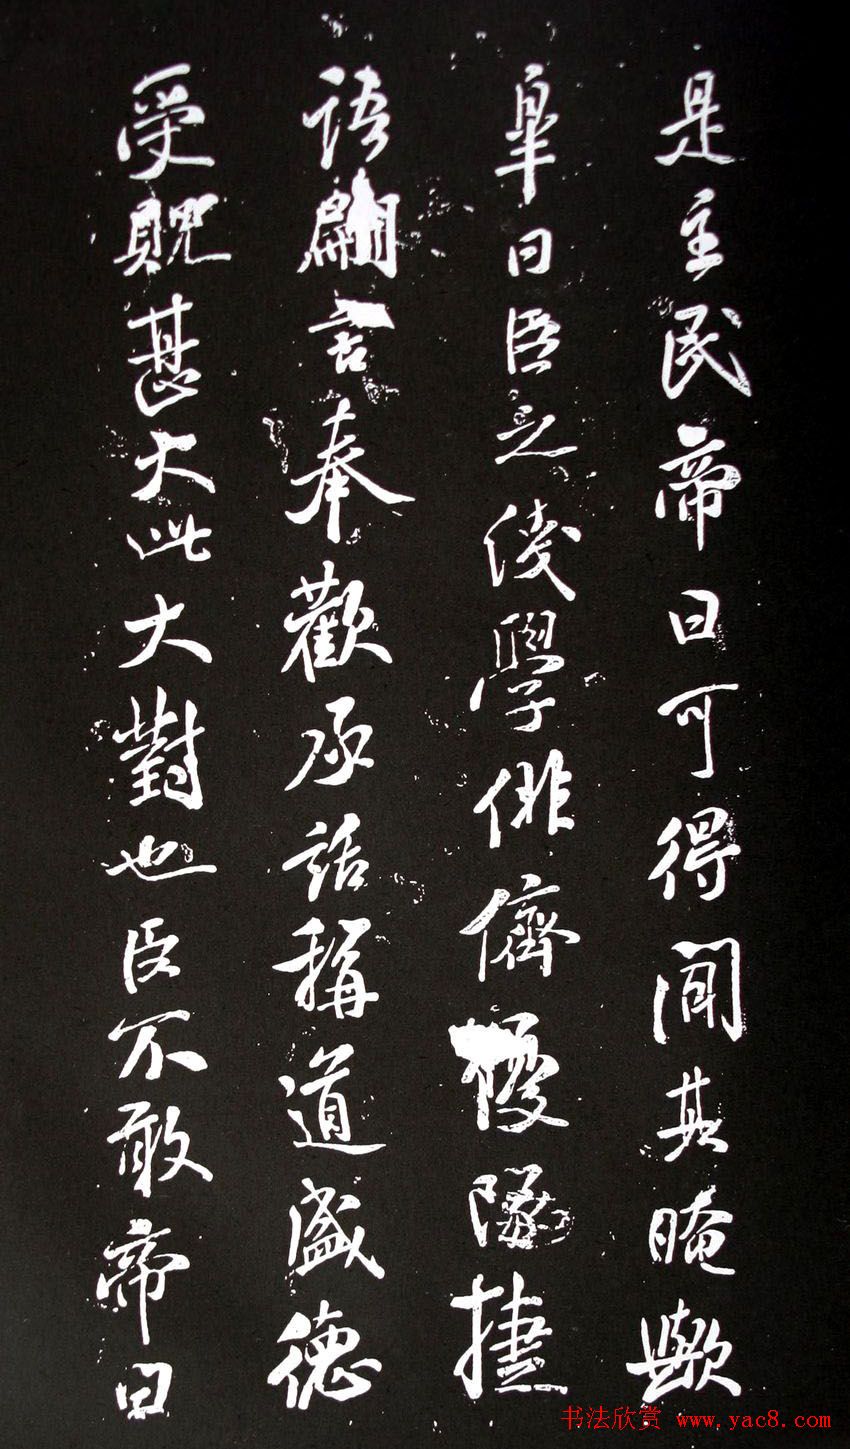 是主民帝曰可得聞其晻歟
皐曰臣之俴學俳儕優隊捷
語翩言奉歡承話稱道盛德
受貺甚大此大對也臣不敢帝曰
书法欣赏 www.yac8.com